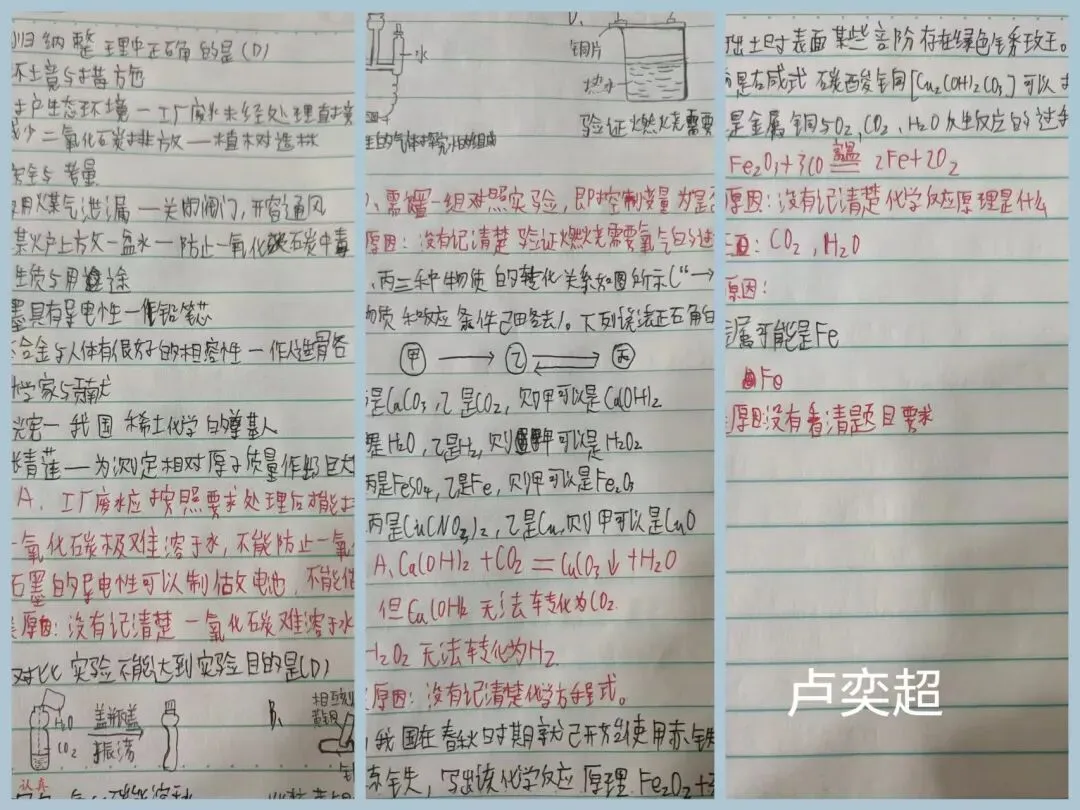 归纳整理中正确的是(D)
环境与
护生态环境一工厂废水未经处理直接
减少二氧化石炭排放一植树造林
安全与
用煤气泄漏一关闭阀门,开窗通风
某火户上方欠一盆水一防止一氧化石炭中毒
性质与用途
墨具有导电性一作铅笔芯
合金与人体有很好的相容性一作人造骨各
化学家与贡献
光宪一我国稀土化学的奠基人
张青莲一为测定相对原子质量作出巨大
A.工厂废水应按照要求处理后才能
一氧化石炭极难溶于水,不能防止一氧
石墨的导电性可以制作电池,不能
原因:没有记清楚一氧化石炭难溶于水
对比实验不能达到实验目的是(D)
H2O
CO2
盖瓶盖
振荡
B、
认真
水
铜片
热水
验证燃烧需要
D、需置一组对照实验,即控制变量为是否
原因:没有记清楚验证燃烧需要氧气的过
、丙三种物质的转化关系如图所示(“→
物质和反应条件已田各去)。下列说法正石角的
甲 乙 丙
是CaCO3,乙是CO2,则甲可以是Ca(OH)2
是H2O,乙是H2,则甲可以是H2O2
丙是FeSO4,乙是Fe,则甲可以是Fe2O3
丙是Cu(NO3)2,乙是Cu,则甲可以是CuO
A、Ca(OH)2+CO2=CaCO3↓+H2O
但Ca(OH)2无法车转化为CO2
H2O2无法转化为H2
原因:没有记清楚化学方程式。
我国在春秋时期就已开始使用赤铁
赤铁,写出该化学反应原理Fe2O2+3
出土时表面某些部阶存在绿色
是石咸式石炭酸铜[Cu2(OH)2CO3]可以
是金属铜与O2,CO2,H2O发生反应的过
Fe2O3+3CO 高温 2Fe+2O2
原因:没有记清楚化学反应原理是什么
CO2,H2O
原因:
属可能是Fe
Fe
原因没有看清题目要求
卢奕超